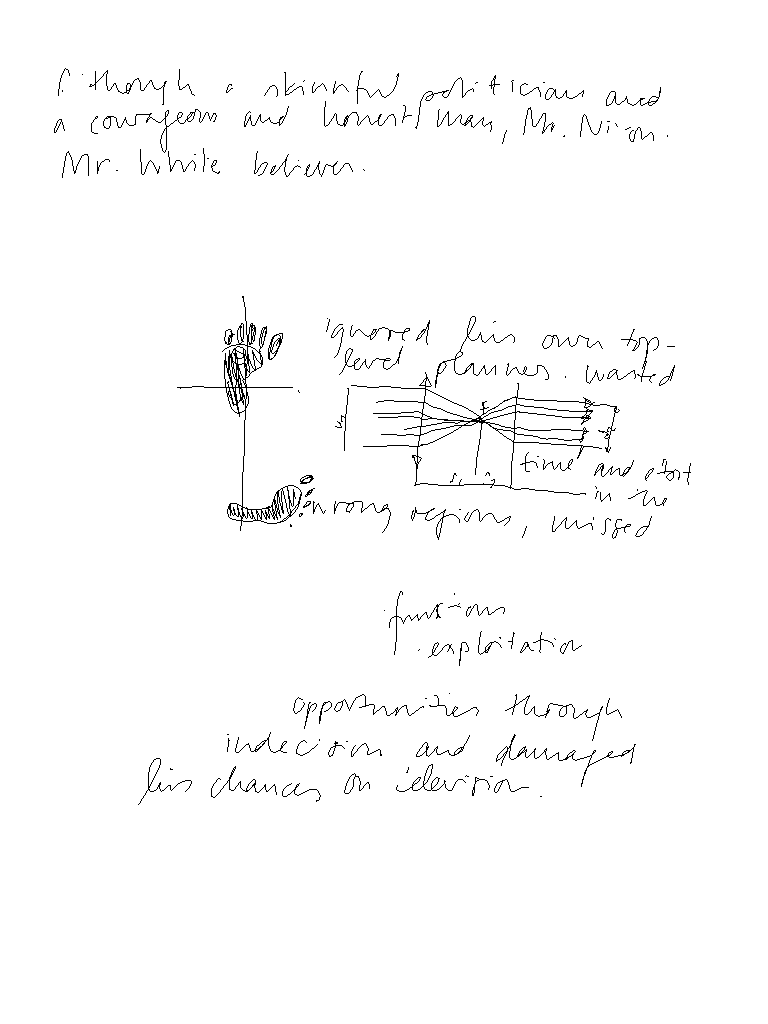 though a skillful politician and
a courageous and honest man, Mr. Nixon.
Mr. White believes.
ignored his own top-
level planners. wasted
time and effort
in the
wrong regions, missed
functions
exploitation
opportunities through
indecision and damaged
his chances on television.